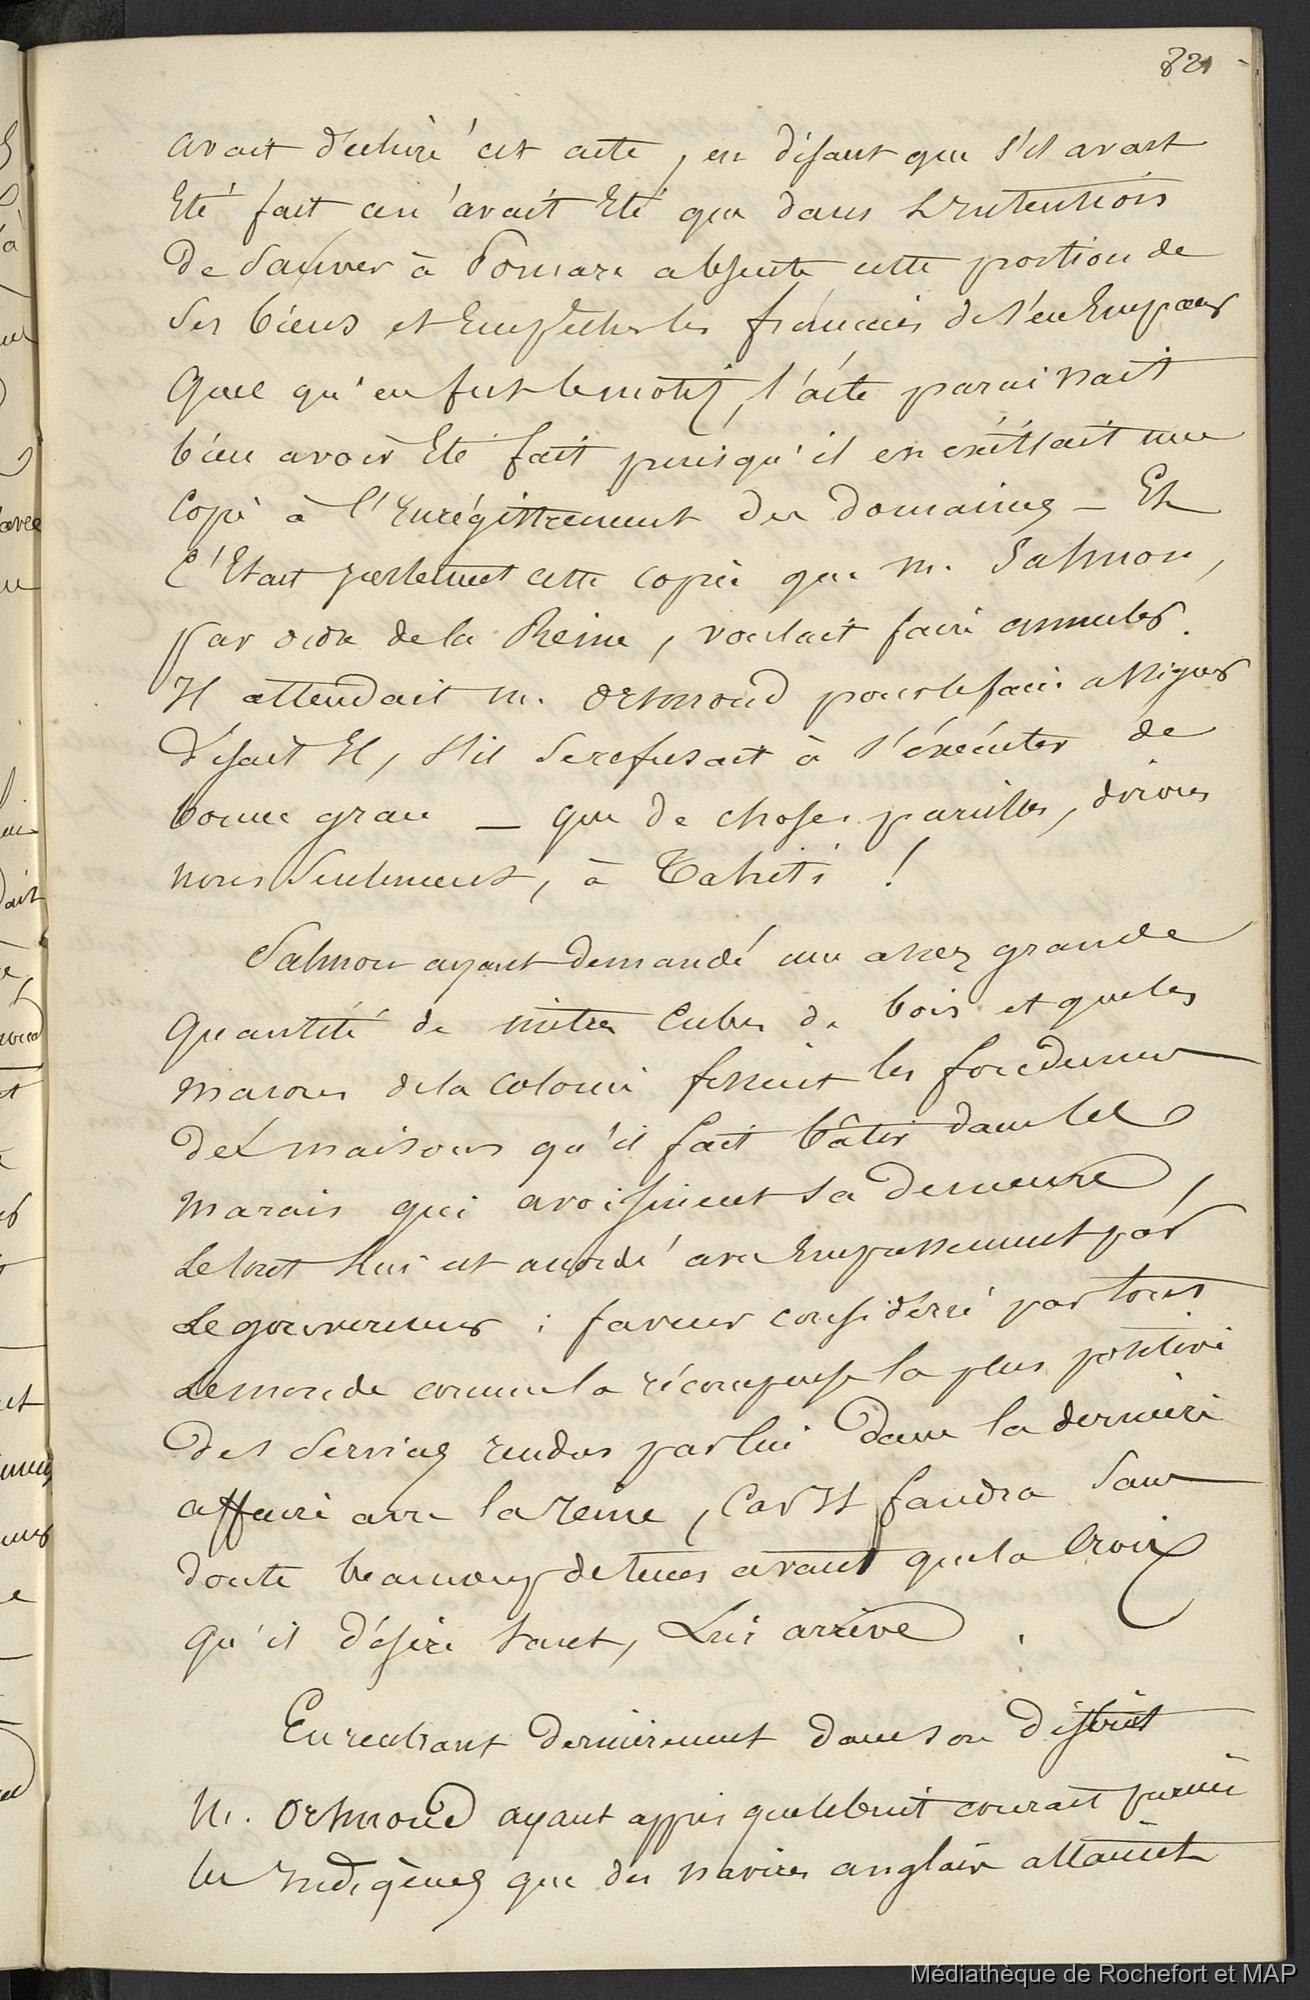 821
avait déchiré cet acte, en disant que s'il avait
Eté fait ce n'avait Eté que dans L'intention
de sauver à Pomare absente cette portion de
ses biens et Empêcher les français de s'en Emparer
Quel qu'en fut le motif, l'acte paraissait
bien avoir Eté fait puisqu'il en existait une
Copie à l'Enrégistrement des domaines _ Et
C'Etait justement cette copie que M. Salmon,
par ordre de la Reine, voulait faire annuler.
Il attendait M. Ormond pour le faire assigner
disait Il, s'il se refusait à s'éxécuter de
bonne grace _ que de choses pareilles, dirons
nous seulement, à Tahiti !
Salmon ayant demandé une assez grande
Quantité de mètres Cubes de bois et que les
masons de la colonie fissent les fondemens
des maisons qu'il fait bâtir dans les
marais qui avoisinent sa demeure,
Le tout Lui est accordé avec Empressement par
Le gouverneur ; faveur considérée par tout
Le monde comme la récompense la plus positive
des Services rendus par lui dans la dernière
affaire avec la reine, Car Il faudra sans
doute beaucoup de tems avant que la Croix
qu'il désire tant, Lui arrive.
En rentrant dernièrement dans son district
M. Ormond ayant appris que le bruit courait parmi
les Indigènes que des navires anglais allaient
Médiathèque de Rochefort et MAP